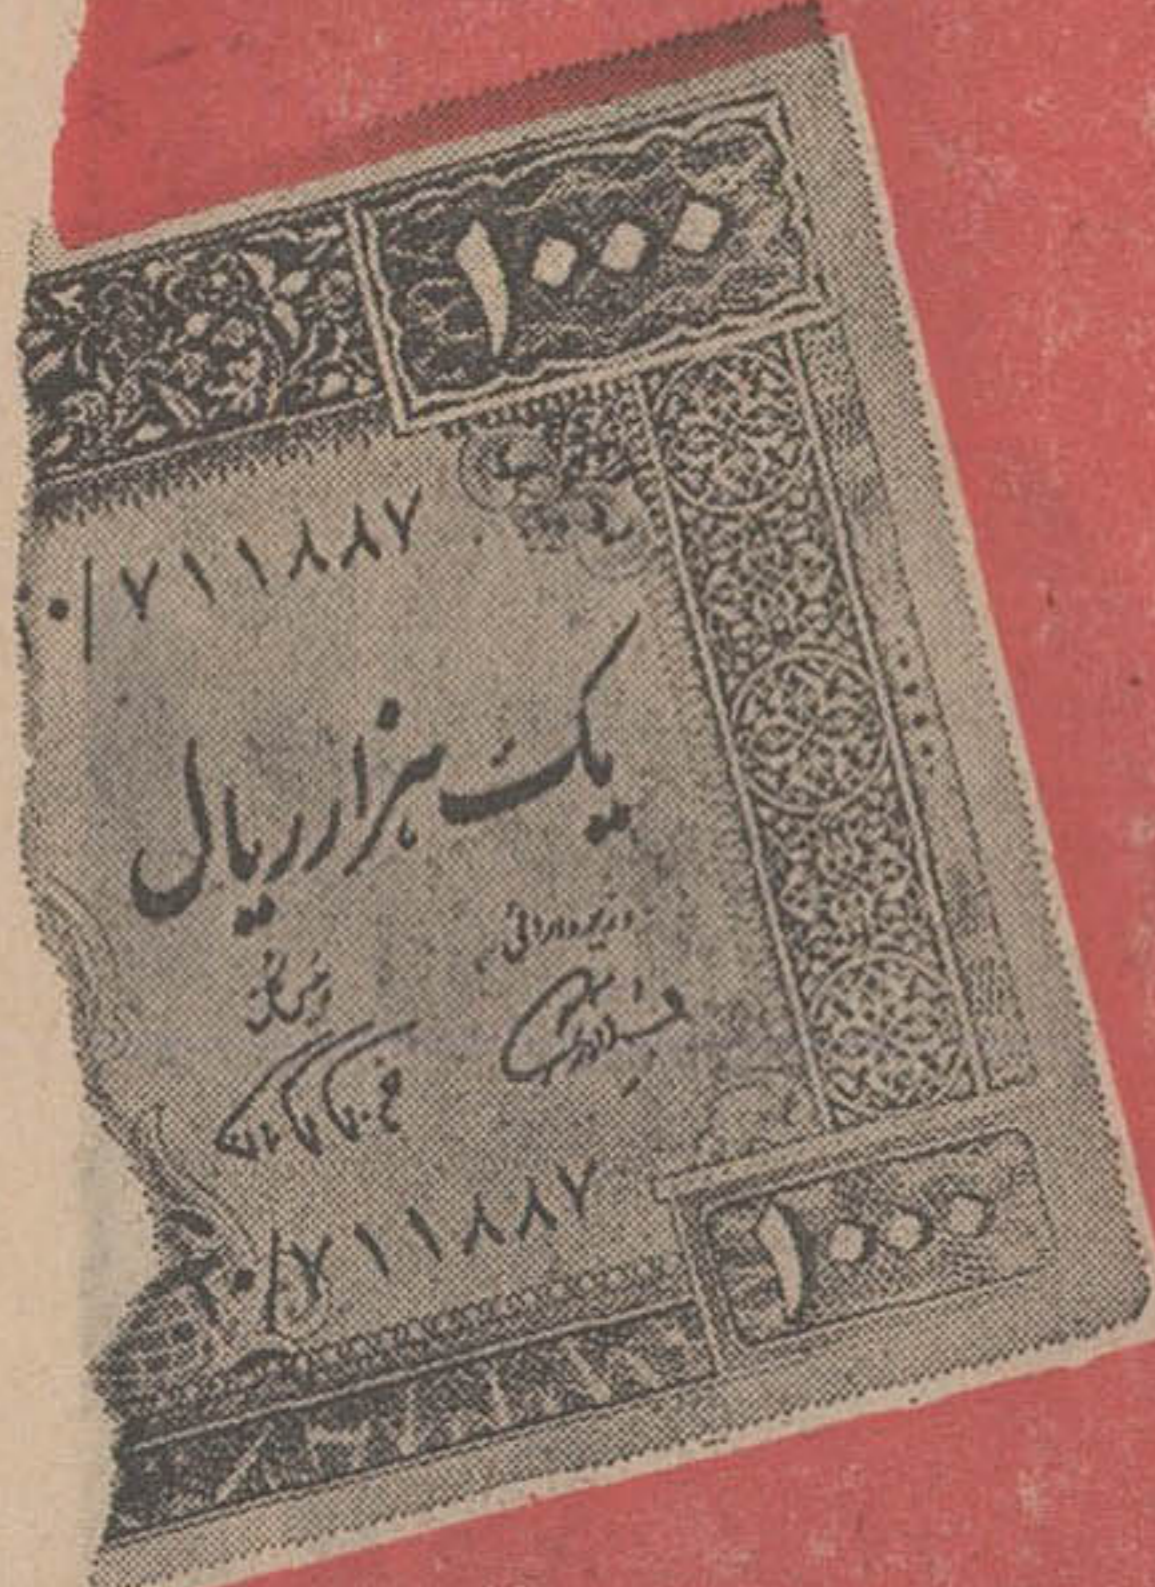 ۱۰۰۰
۰/۷۱۱۸۸۷
یک هزار ریال
وزیر دارائی
۰/۷۱۱۸۸۷
۱۰۰۰